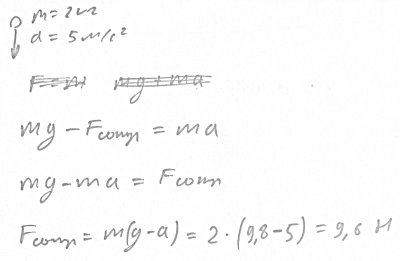 m = 2 кг
a = 5 м/с²
F = m mg + ma
mg - Fсопр = ma
mg - ma = Fсопр
Fсопр = m(g-a) = 2 · (9,8-5) = 9,6 Н